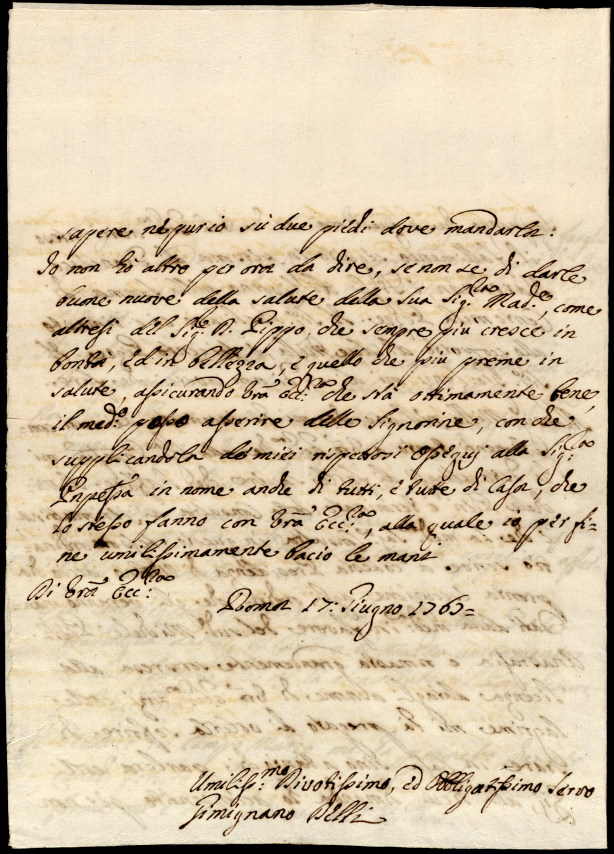 sapere nè pur io sù due piedi dove mandarla:
Io non hò altro per ora da dire, se non se di darle
buone nuove della salute della sua Sig.ra Mad.e, come
altresì del Sig.e D. Pippo, che sempre più cresce in
bontà, ed in bellezza, e quello che più preme in
salute, assicurando Vra Ecc.za che stà ottimamente bene,
il med.o posso asserire delle Signorine, con che
supplicandola de miei rispettosi ossequj alla Sig.ra
Pnpessa in nome anche di tutti, e tutte di Casa, che
lo stesso fanno con Vra Ecc.za, alla quale io per fi=
ne umilissimamente bacio le mani
Di Vra Ecc.za
Roma 17. Giugno 1767=
Umiliss.mo Divotissimo, ed Obbligatissimo Servo
Gimignano Belli